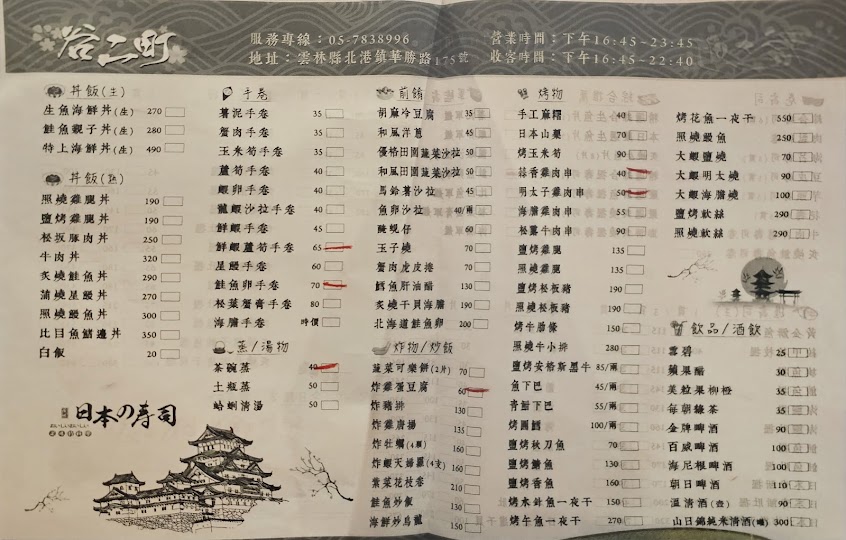 谷二町
服務專線：05-7838996
地址：雲林縣北港鎮華勝路175號
營業時間：下午16:45~23:45
收客時間：下午16:45~22:40
丼飯(生)
生魚海鮮丼(生) 270
鮭魚親子丼(生) 280
特上海鮮丼(生) 490
丼飯(熟)
照燒雞腿丼 190
鹽烤雞腿丼 190
松坂豚肉丼 250
牛肉丼 320
炙燒鮭魚丼 290
蒲燒星鰻丼 270
照燒鰻魚丼 300
比目魚鰭邊丼 350
白飯 20
日本の寿司
おいしいおいしい
手卷
薯泥手卷 35
蟹肉手卷 35
玉米筍手卷 35
蘆筍手卷 40
蝦卵手卷 40
龍蝦沙拉手卷 40
鮮蝦手卷 45
鮮蝦蘆筍手卷 65
星鰻手卷 60
鮭魚卵手卷 70
松葉蟹膏手卷 80
海膽手卷 時價
蒸/湯物
茶碗蒸 40
土瓶蒸 50
蛤蜊清湯 50
前餚
胡麻冷豆腐 35
和風洋蔥 45
優格田園蔬菜沙拉 50
和風田園蔬菜沙拉 50
馬鈴薯沙拉 45
魚卵沙拉 40/兩
醃蜆仔 60
玉子燒 70
蟹肉虎皮捲 70
鱈魚肝油醋 130
炙燒干貝海膽 190
北海道鮭魚卵 200
炸物/炒飯
蔬菜可樂餅(2片) 70
炸雞蛋豆腐 60
炸豬排 130
炸雞唐揚 135
炸牡蠣(4顆) 160
炸蝦天婦羅(4支) 160
紫菜花枝卷 210
鮭魚炒飯 130
海鮮炒烏龍 150
烤物
手工麻糬 40
日本山藥 70
烤玉米筍 90
蒜香雞肉串 40
明太子雞肉串 50
海膽雞肉串 55
松露牛肉串 90
鹽烤雞腿 135
照燒雞腿 135
鹽烤松板豬 190
照燒松板豬 190
烤牛肋條 150
照燒牛小排 280
鹽烤安格斯黑牛 85/兩
魚下巴 45/兩
青魽下巴 55/兩
烤圓鱈 100/兩
鹽烤秋刀魚 70
鹽烤鯖魚 130
鹽烤香魚 160
烤水針魚一夜干 150
烤午魚一夜干 270
烤花魚一夜干 550
照燒鰻魚 250
大蝦鹽燒 70
大蝦明太燒 90
大蝦海膽燒 100
鹽烤軟絲 290
照燒軟絲 290
飲品/酒飲
雪碧 25
蘋果醋 30
美粒果柳橙 35
每朝綠茶 35
金牌啤酒 90
百威啤酒 100
海尼根啤酒 100
朝日啤酒 110
溫清酒(壺) 90
山田錦純米清酒 300